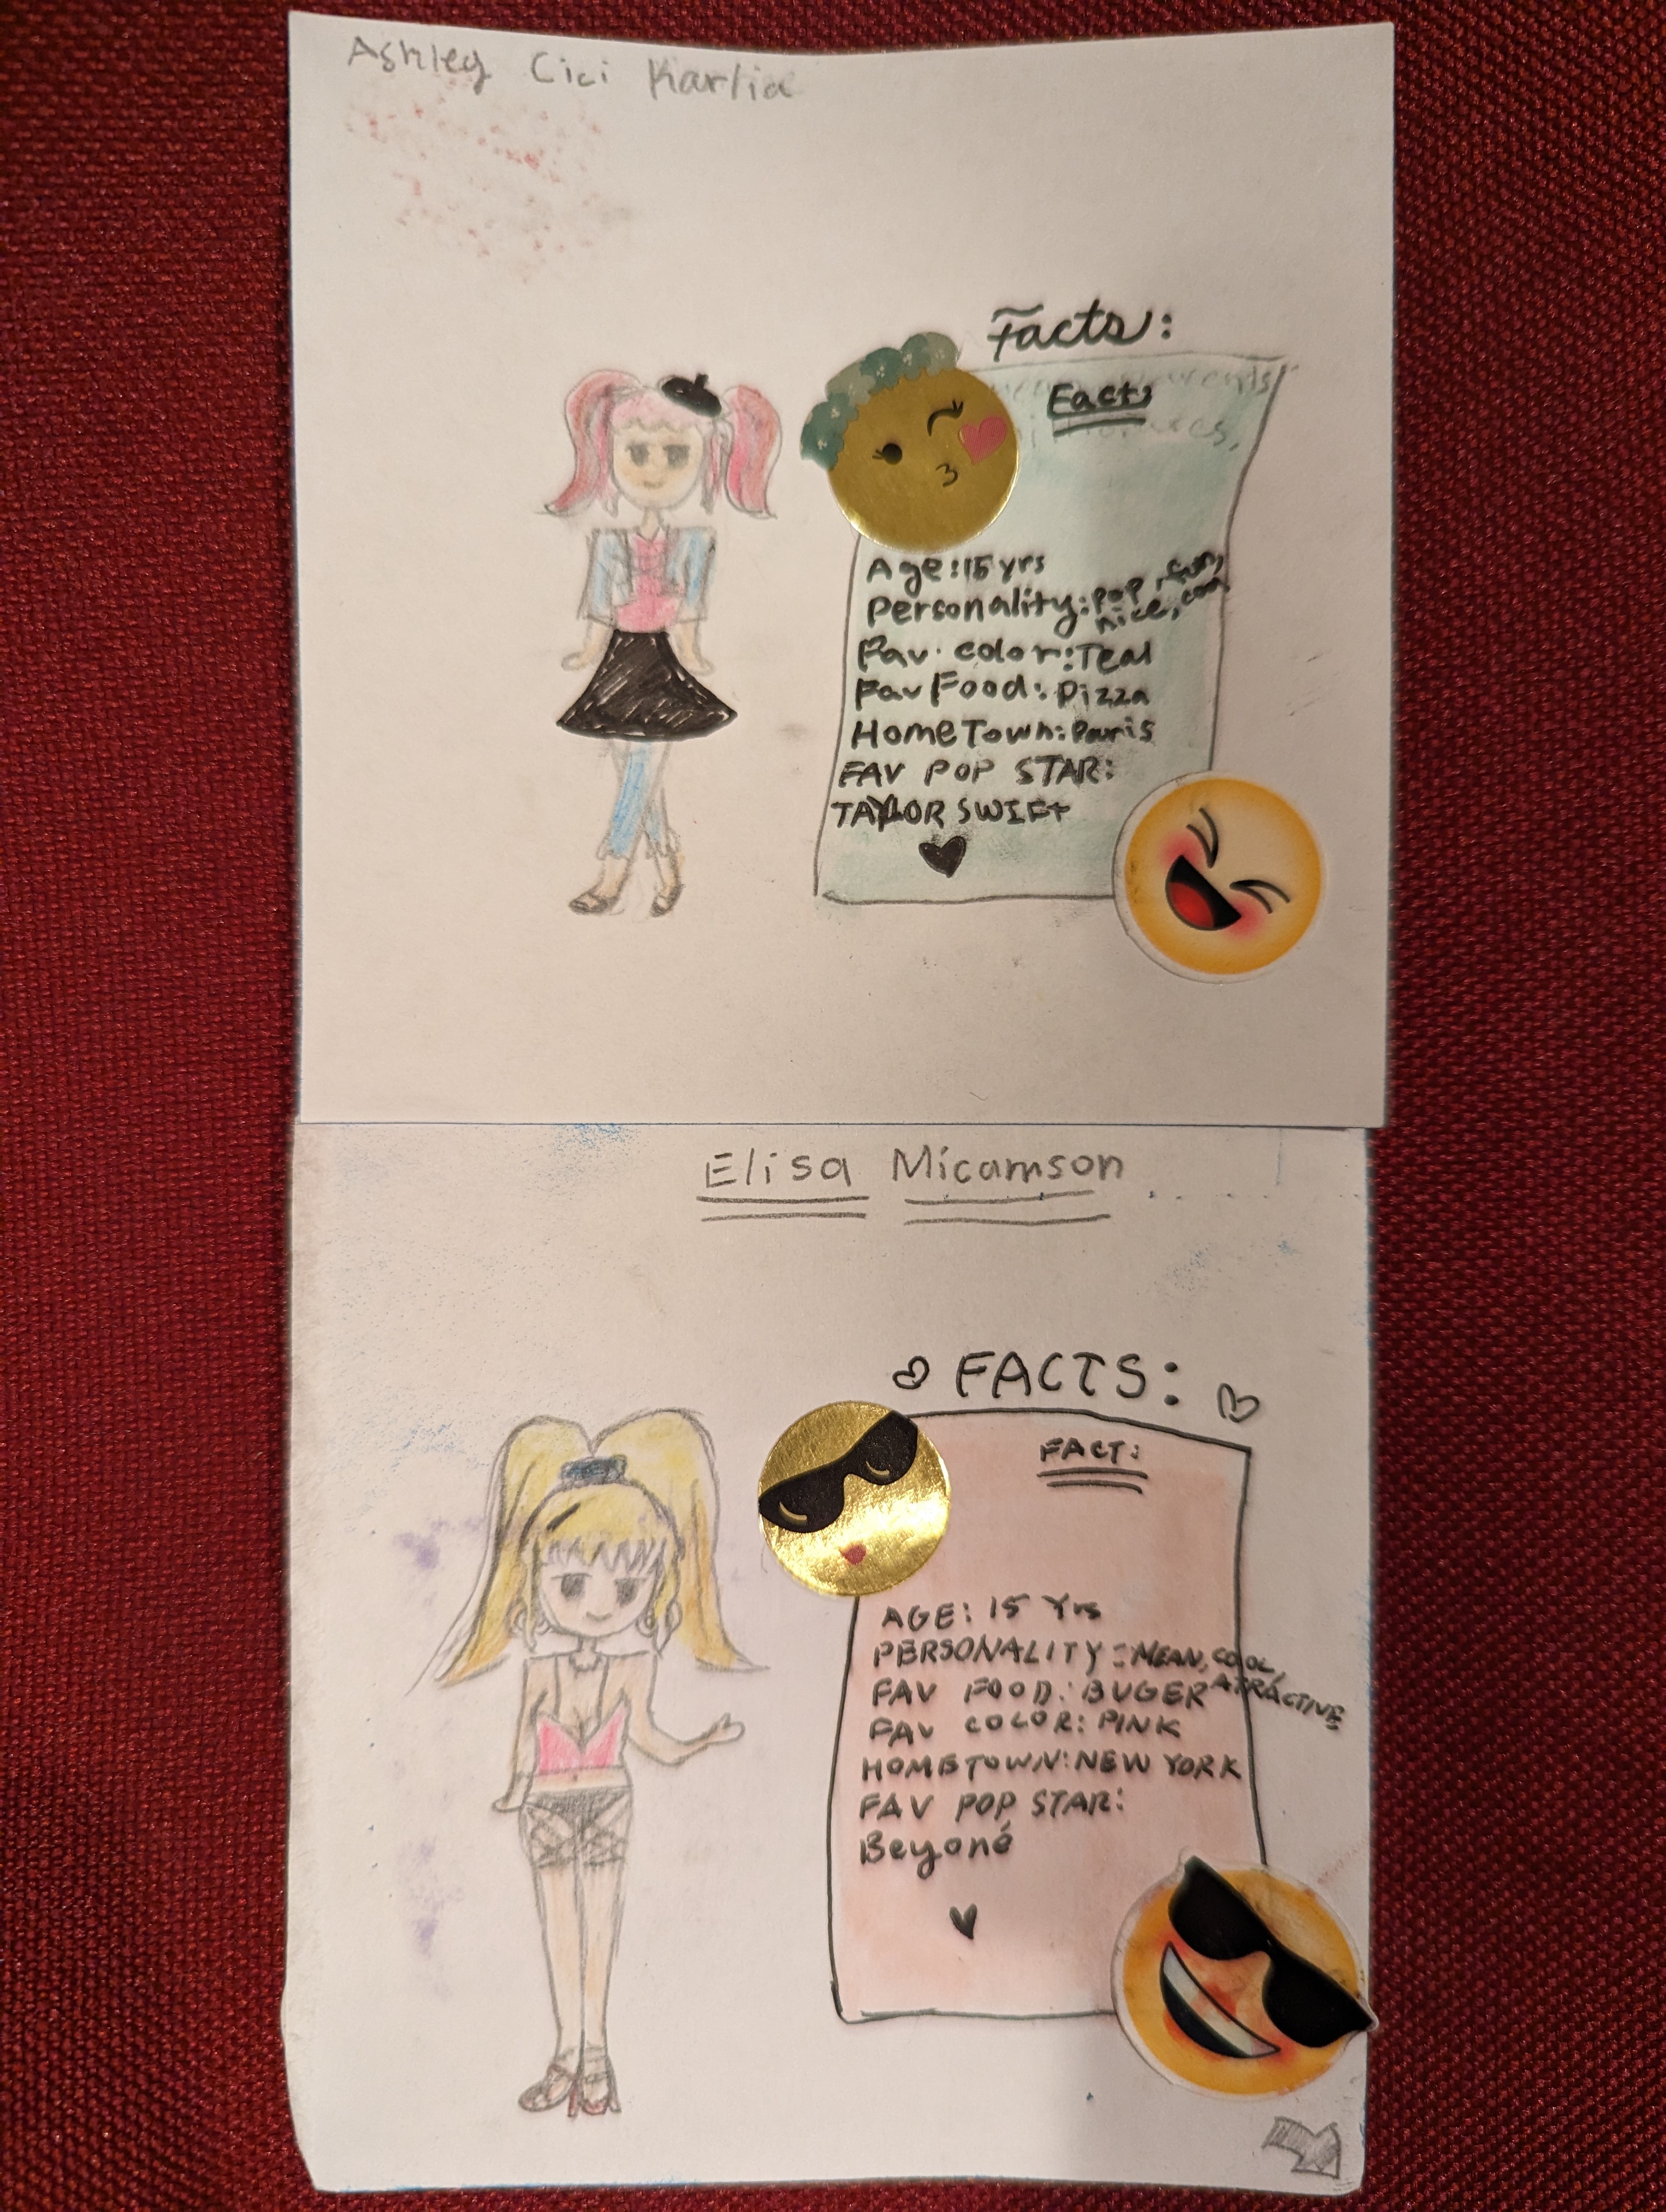 Ashley Cici Karlia
Facts:
Facts
Age:15 yrs
Personality:pop, fun,
nice, cool
Fav. color:Teal
Fav Food: pizza
HomeTown: Paris
FAV POP STAR:
TAYLOR SWIFT
Elisa Micamson
FACTS:
FACT:
AGE: 15 Yrs
PERSONALITY: MEAN, COOL,
ATRACTIVE
FAV FOOD: BUGER
FAV COLOR: PINK
HOMETOWN: NEW YORK
FAV POP STAR:
Beyoné